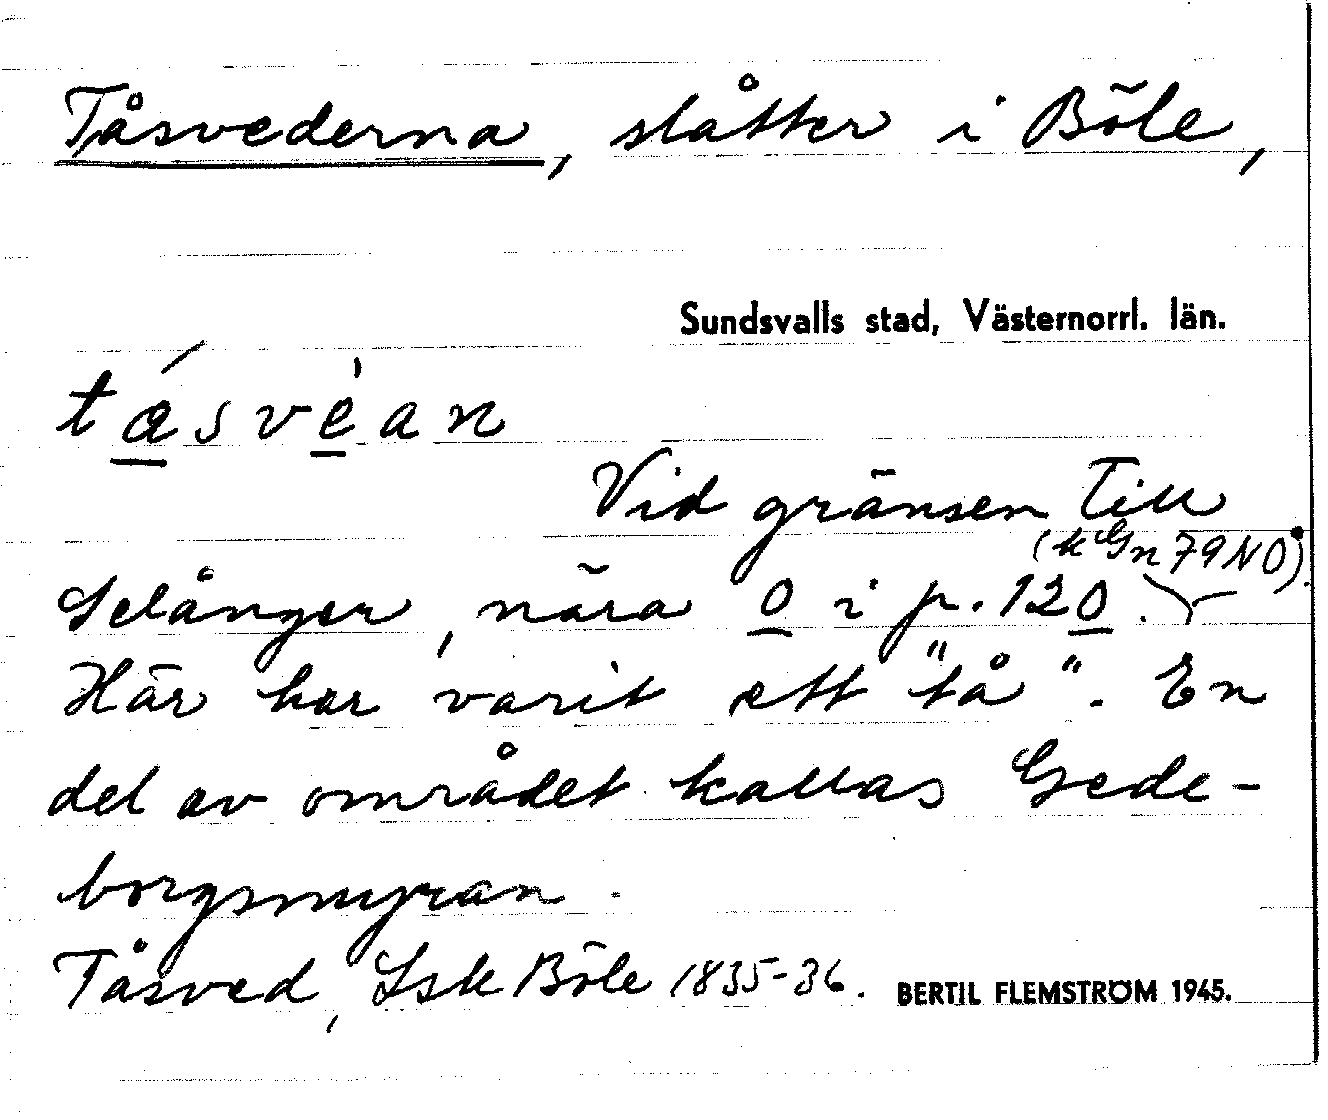 Tåsvederna, slåtter i Böle,
Sundsvalls stad, Västernorrl. län.
tásvèan
Vid gränsen till
(k Gn 79 NO).
Selånger, nära 0 i p. 120.
Här har varit ett "tå". En
del av området kallas Gede-
borgsmyran.
Tåsved, Lsk Böle 1835-36. BERTIL FLEMSTRÖM 1945.